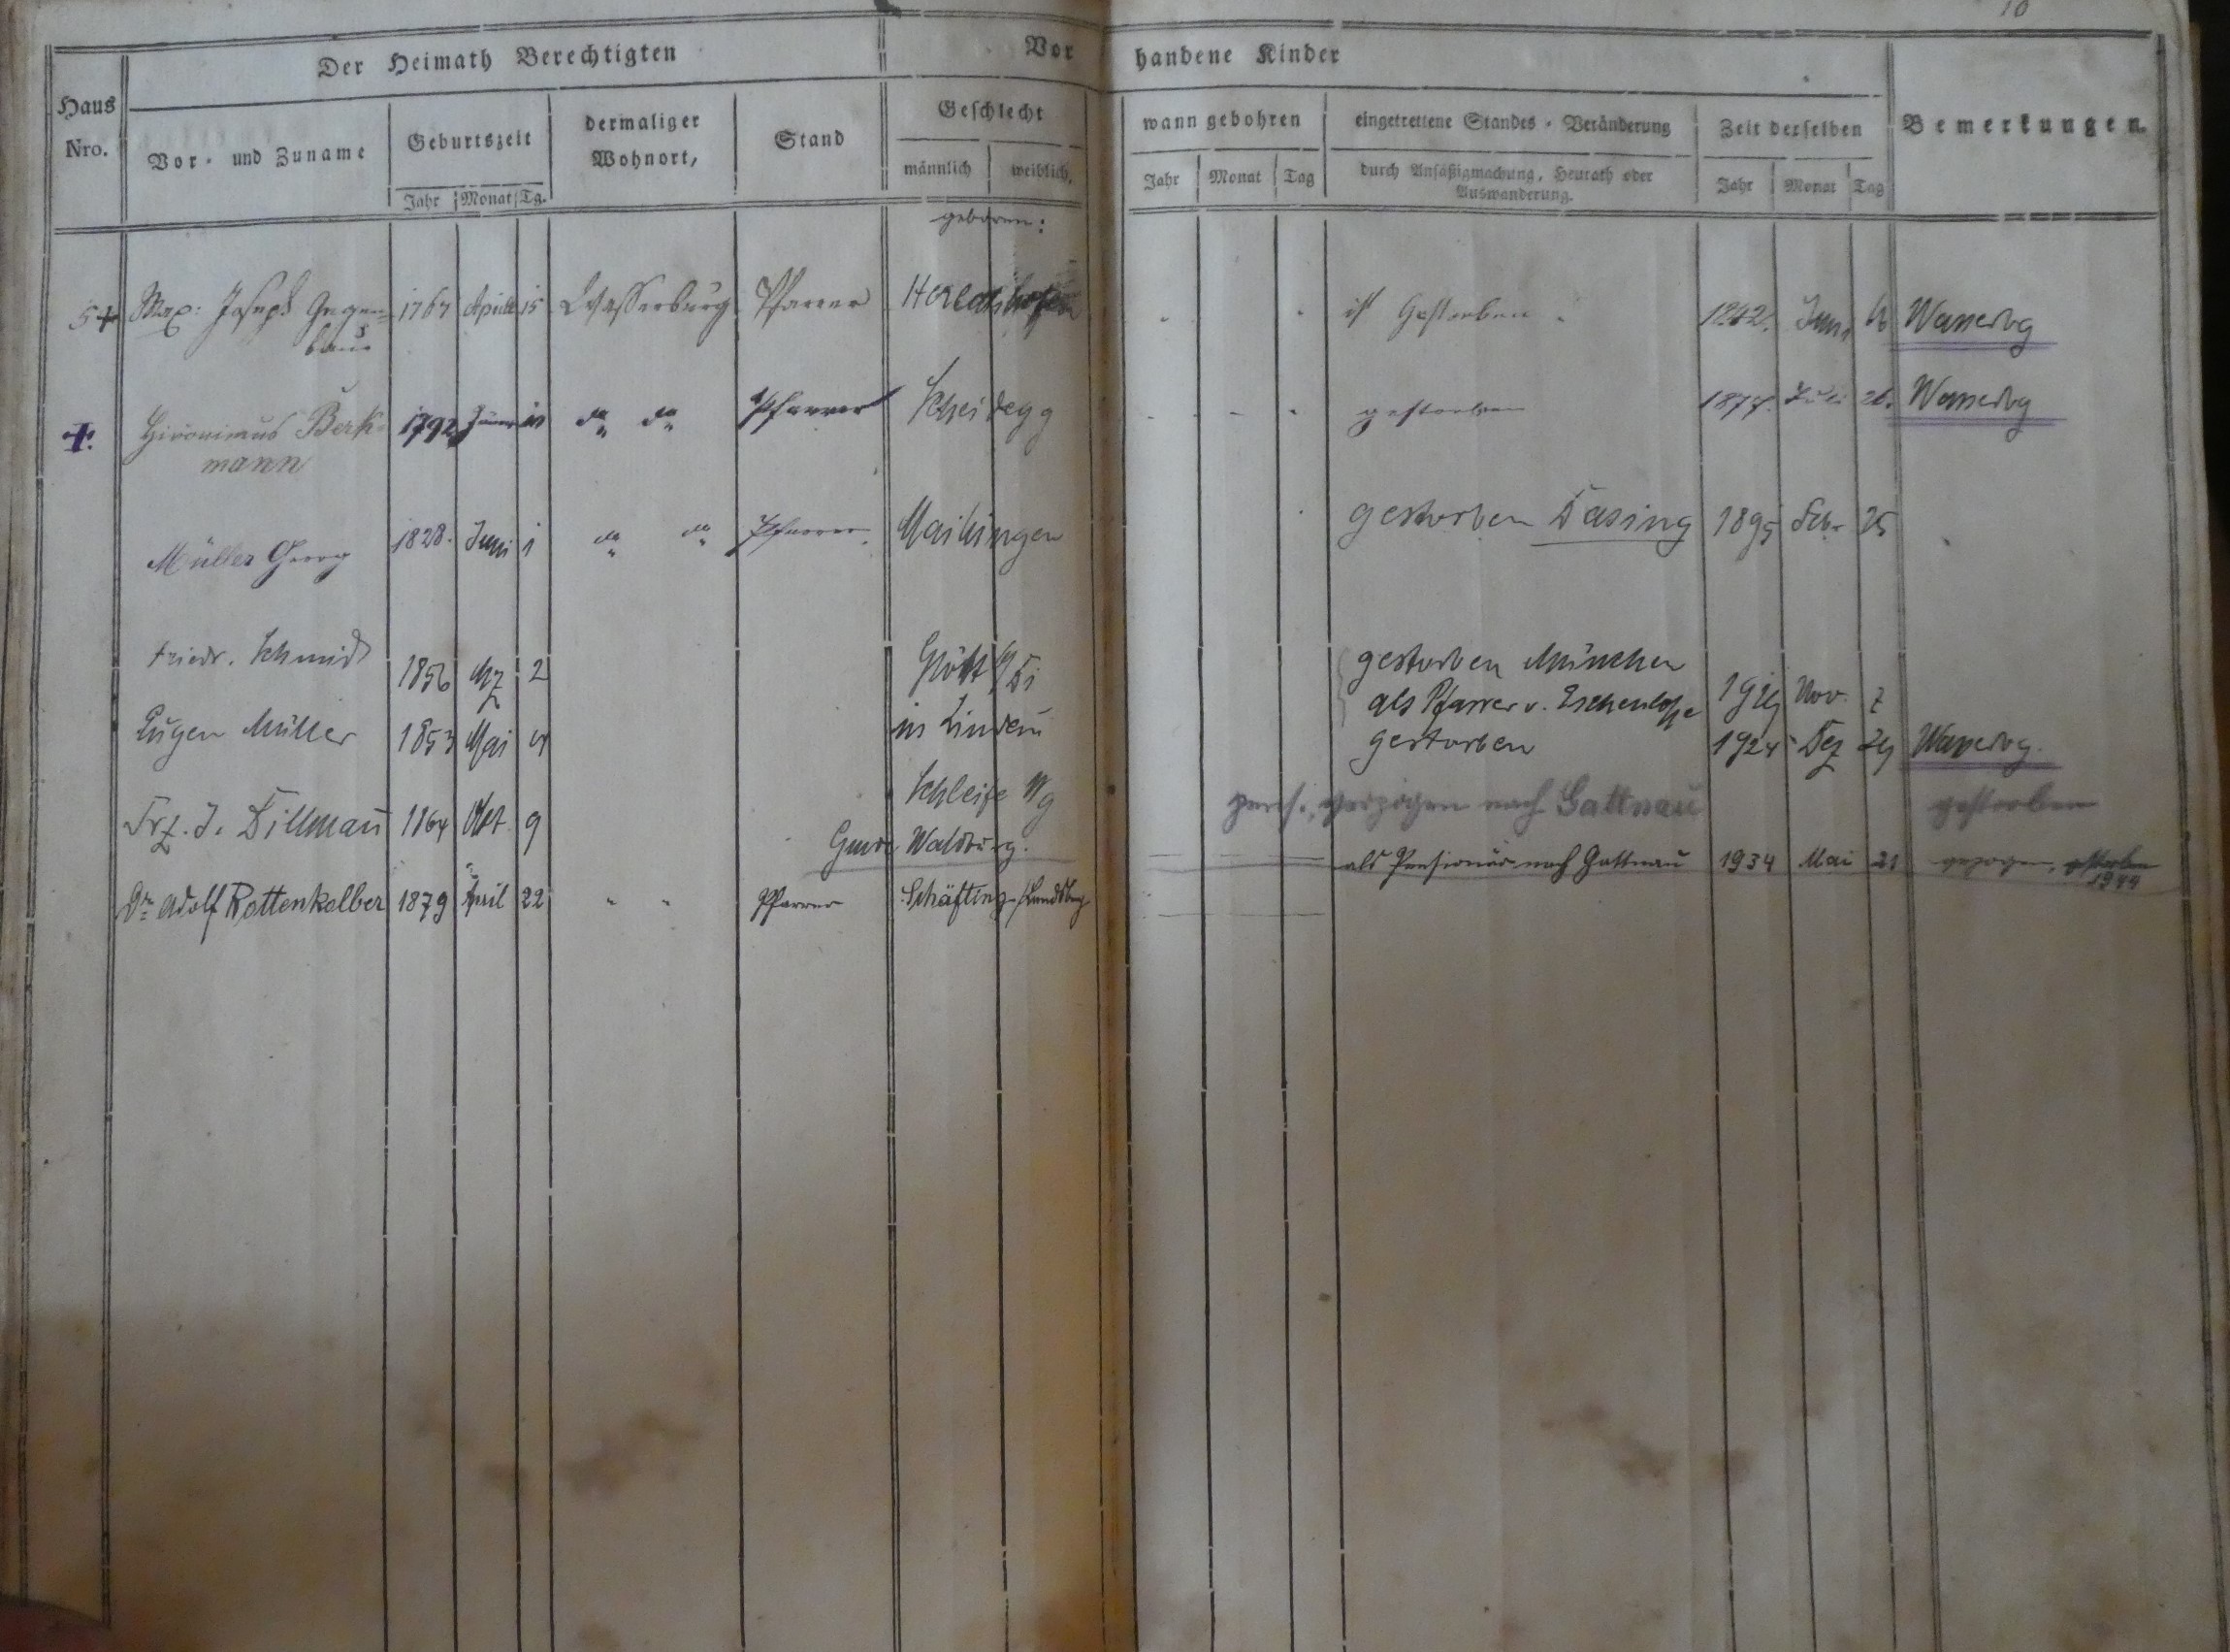 10
Der Heimath Berechtigten Vorhandene Kinder
Haus Nro.
Vor- und Zuname
Geburtszeit
Jahr Monat Tg.
dermaliger Wohnort,
Stand
Geschlecht
männlich weiblich.
wann gebohren
Jahr Monat Tag
eingetrettene Standes-Veränderung
durch Ansäßigmachung, Heurath oder
Auswanderung.
Zeit derselben
Jahr Monat Tag
Bemerkungen.
geboren:
Max: Joseph Gegen=
baur 1767 April 15 Wasserburg Pfarrer ist Gestorben 1842. Juni Wasserbg
Hironimus Berk=
mann 1792 do do Pfarrer Scheidegg gestorben 1874. Juli 26. Wasserbg
Müller Georg 1828. Juni 1 do do Pfarrer Maihingen gestorben Dasing 1895 Febr 25
Friedr. Schmid 1856 Mz 2 Glött gestorben München
als Pfarrer v. Eschenlohe Nov. 7
Eugen Müller 1853 Mai in Lindau gestorben 1924 Dez 29 Wasserbg.
Frz. J. Dillmann 1864 Okt. 9 Schleife Wg
pens. verzogen nach Gattnau gestorben
Gmde Waldburg.
als Pensionär nach Gattnau 1934 Mai 21 gezogen, gestorben
1944
Dr. Adolf Rottenkolber 1879 April 22 " " Pfarrer Schöffting/Landsbg